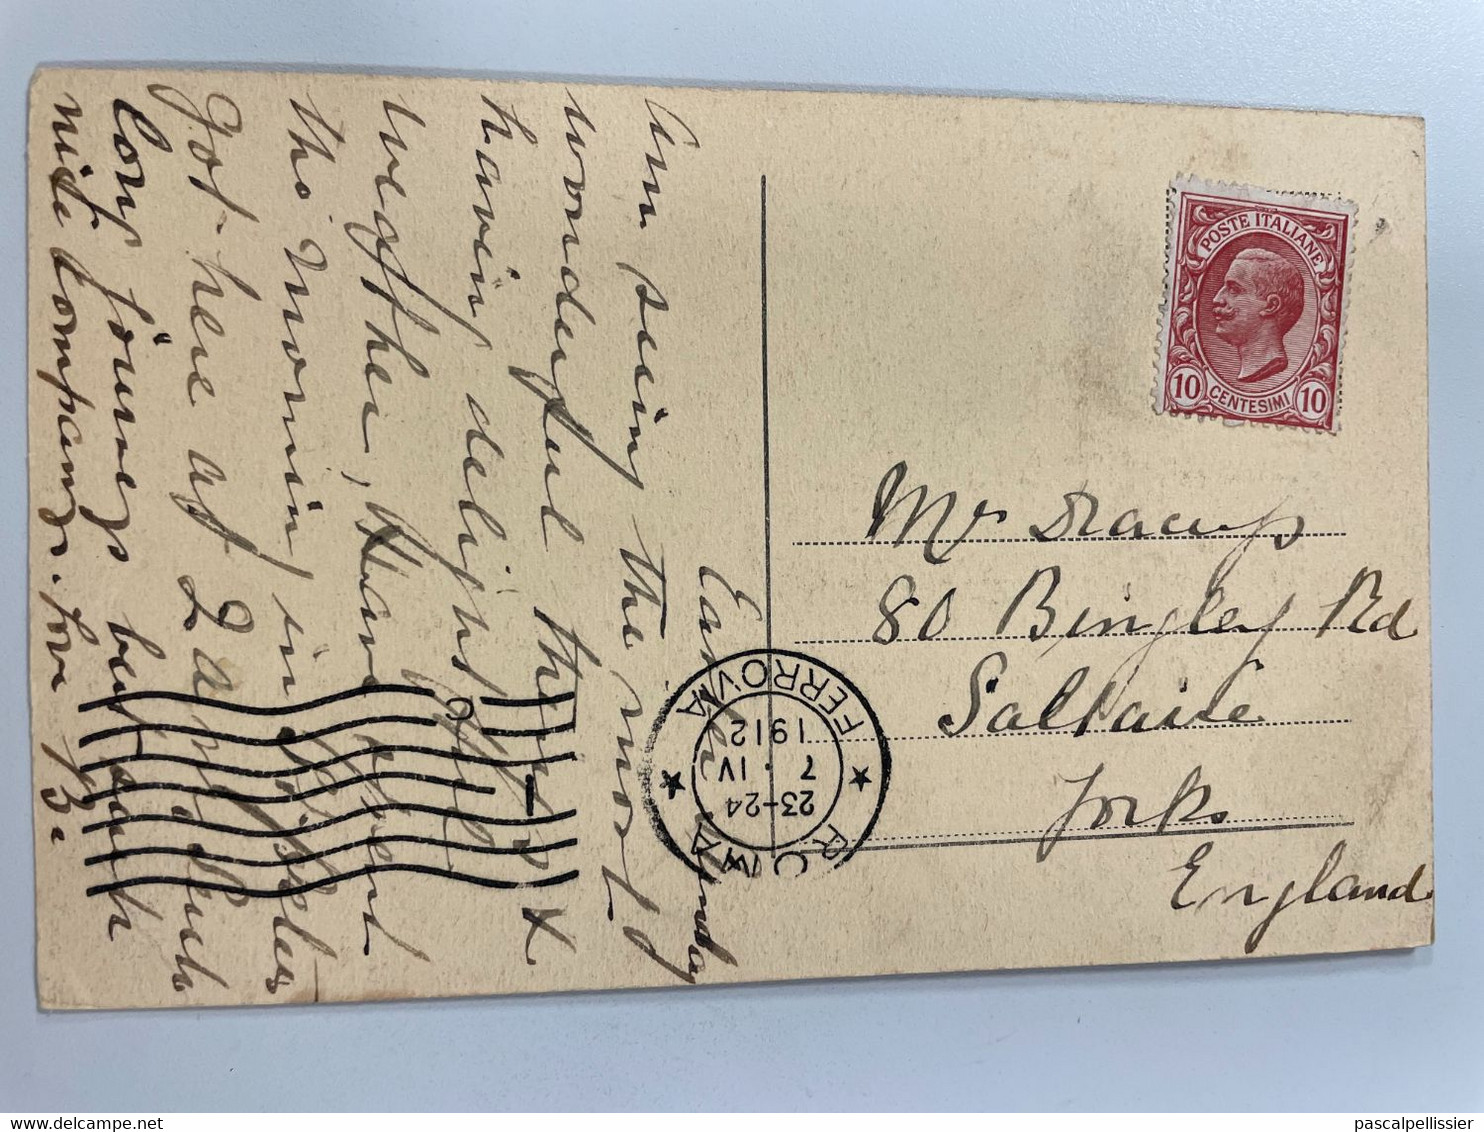 Easter Sunday
Am seeing the most
wonderful things &
having delightful
weather, Have spend
the morning in St Peters
Got here at 2 am after
long journey but such
nice company. Love B.
POSTE ITALIANE
10 CENTESIMI 10
ROMA FERROVIA
23-24
7 . IV
1912
Mrs
80 Bingley Rd
Saltaire
Yorks
England
pascalpellissier
delcampe.net